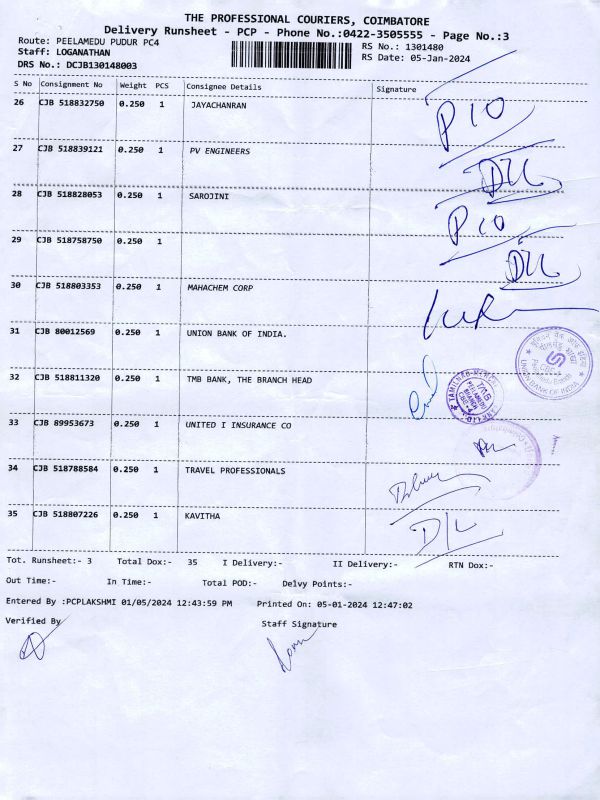 THE PROFESSIONAL COURIERS, COIMBATORE
Delivery Runsheet - PCP - Phone No.:0422-3505555 - Page No.:3
Route: PEELAMEDU PUDUR PC4
RS No.: 1301480
Staff: LOGANATHAN
RS Date: 05-Jan-2024
DRS No.: DCJB130148003
S No Consignment No Weight PCS Consignee Details Signature
26 CJB 518832750 0.250 1 JAYACHANRAN P10
27 CJB 518839121 0.250 1 PV ENGINEERS D/L
28 CJB 518828053 0.250 1 SAROJINI P10
29 CJB 518758750 0.250 1 D/L
30 CJB 518803353 0.250 1 MAHACHEM CORP
31 CJB 80012569 0.250 1 UNION BANK OF INDIA.
UNION BANK OF INDIA
32 CJB 518811320 0.250 1 TMB BANK, THE BRANCH HEAD
33 CJB 89953673 0.250 1 UNITED I INSURANCE CO
34 CJB 518788584 0.250 1 TRAVEL PROFESSIONALS
35 CJB 518807226 0.250 1 KAVITHA D/L
Tot. Runsheet:- 3 Total Dox:- 35 I Delivery:- II Delivery:- RTN Dox:-
Out Time:- In Time:- Total POD:- Delvy Points:-
Entered By :PCPLAKSHMI 01/05/2024 12:43:59 PM Printed On: 05-01-2024 12:47:02
Verified By Staff Signature